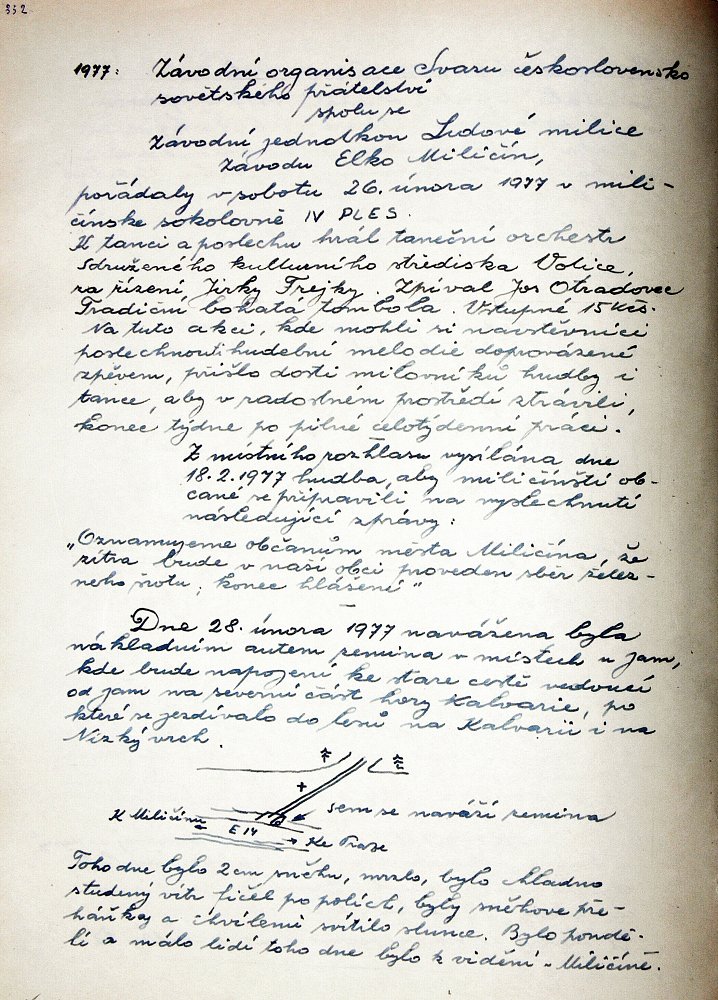 332
1977: Závodní organisace Svazu československo
sovětského přátelství
spolu se
Závodní jednotkou Lidové milice
Závodu Elko Miličín,
pořádaly v sobotu 26. února 1977 v mili-
čínske sokolovně IV PLES.
K tanci a poslechu hrál taneční orchestr
Sdruženého kulturního střediska Votice,
za řízení Jirky Frejky. Zpíval Jos Otradovec
Tradiční bohatá tombola. Vstupné 15 Kčs.
Na tuto akci, kde mohli si návštěvníci
poslechnouti hudební melodie doprovázené
zpěvem, přišlo dosti milovníků hudby i
tance, aby v radostném prostředí strávili,
konec týdne po pilné celotýdenní práci.
Z místního rozhlasu vysílána dne
18.2.1977 hudba, aby miličínští ob-
čané se připravili na vyslechnutí
následující zprávy:
„Oznamujeme občanům města Miličína, že
zítra bude v naší obci proveden sběr želez-
ného šrotu, konec hlášení"
Dne 28. února 1977 navážena byla
nákladním autem zemina v místech u jam,
kde bude napojení ke stare cestě vedoucí
od jam na severní část hory Kalvarie, po
které se jezdívalo do lesů na Kalvarii i na
Nízký vrch.
K Miličínu
sem se naváží zemina
E 14
Ke Praze
Toho dne bylo 2 cm sněhu, mrzlo, bylo chladno
studený vítr fičel po polích, byly sněhove pře-
háňky a chvílemi svítilo slunce. Bylo pondě-
lí a málo lidí toho dne bylo k vidění v Miličíně.